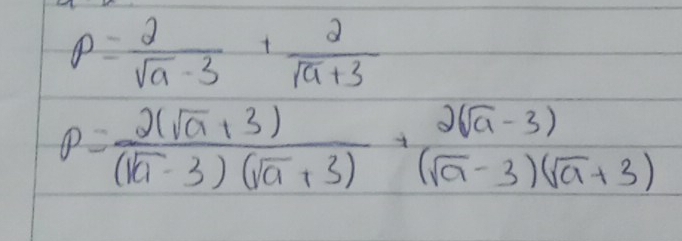 P = 2/(√a - 3) + 2/(√a + 3)
P = 2(√a + 3)/((√a - 3)(√a + 3)) + 2(√a - 3)/((√a - 3)(√a + 3))